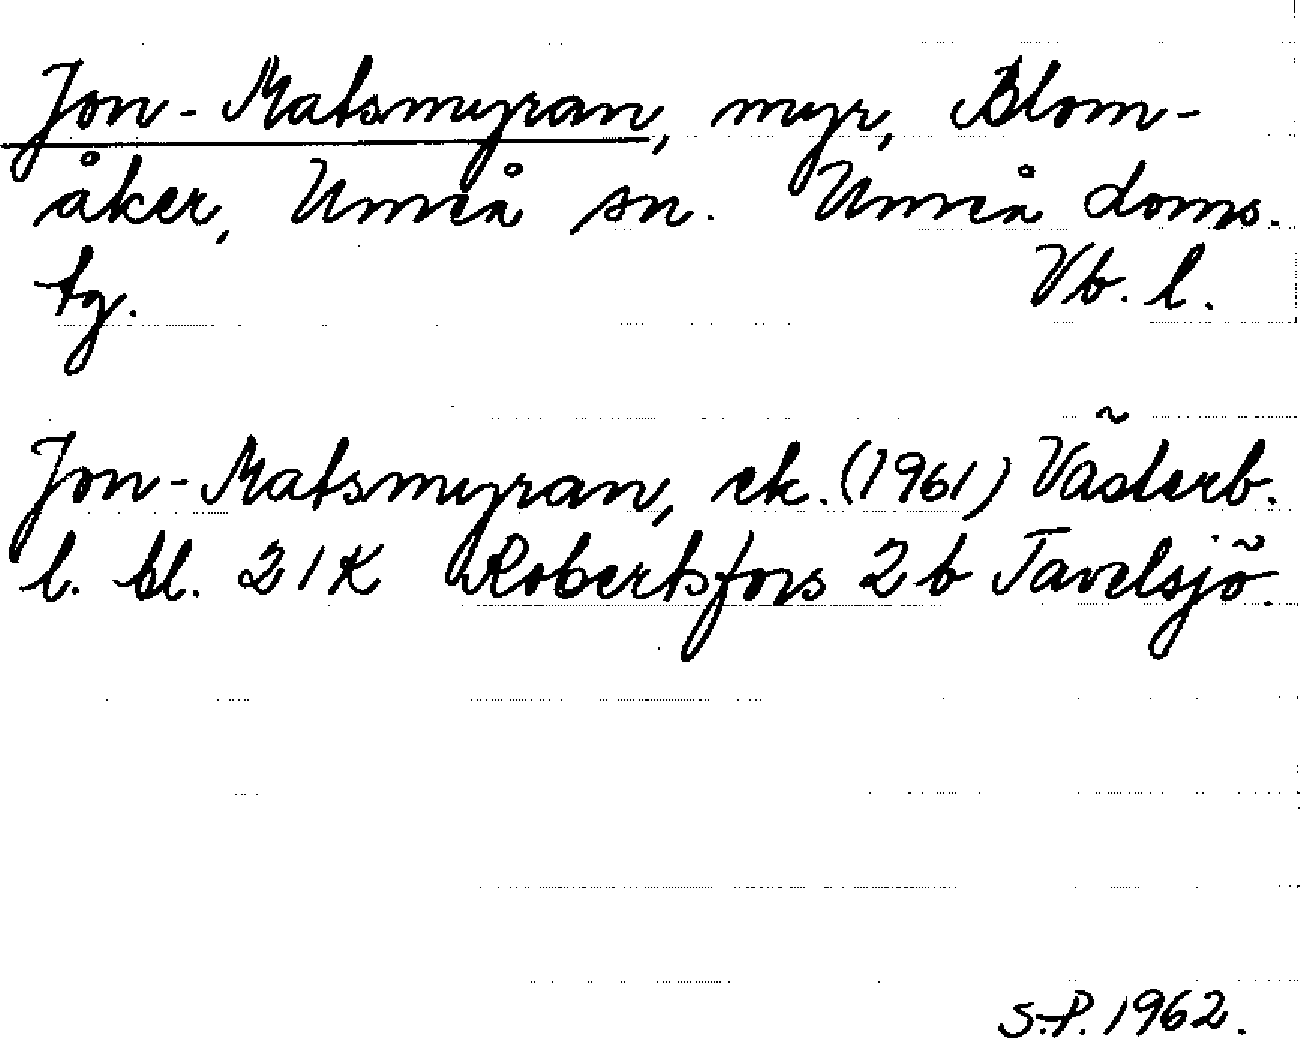 Jon-Matsmyran, myr, Blom-
åker, Umeå sn. Umeå doms.
tg. Vb. l.
Jon-Matsmyran, ek. (1961) Västerb.
l. bl. 21K Robertsfors 2b Tavelsjö.
S.P. 1962.